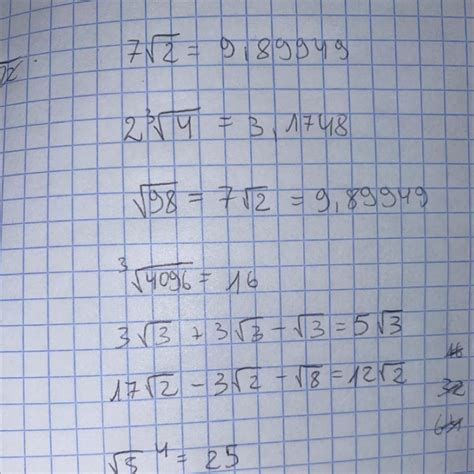 7√2 = 9,89949
2∛4 = 3,1748
√98 = 7√2 = 9,89949
∛4096 = 16
3√3 + 3√3 - √3 = 5√3
17√2 - 3√2 - √8 = 12√2
32
64
√5⁴ = 25